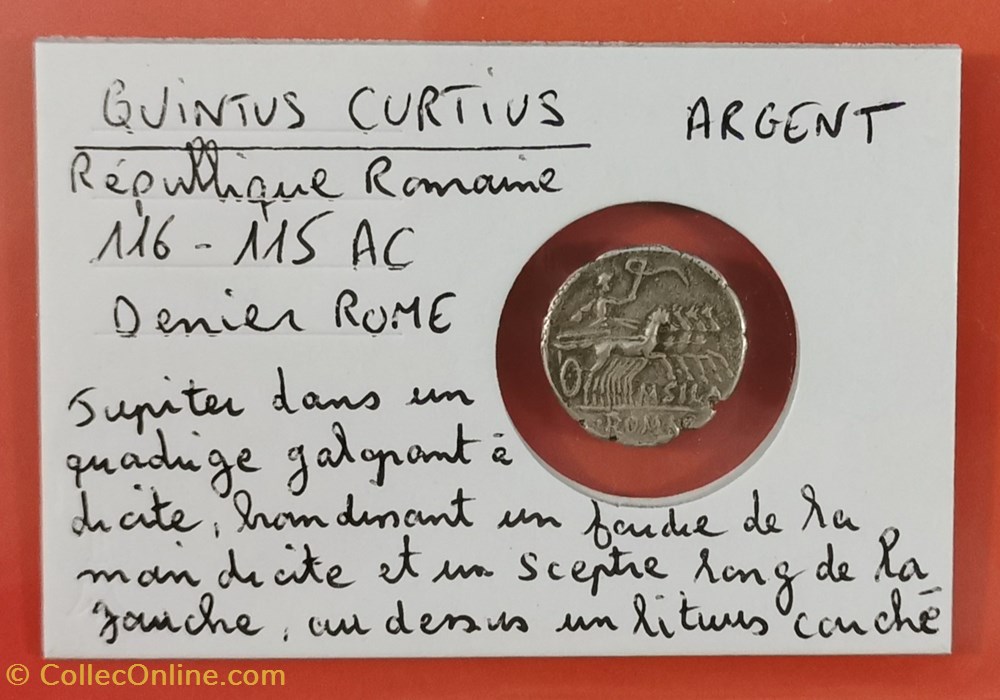 QUINTUS CURTIUS
ARGENT
République Romaine
116 - 115 AC
Denier ROME
Jupiter dans un
quadrige galopant à
droite, brandissant un foudre de la
main droite et un sceptre long de la
gauche, au dessus un lituus couché
M SILA
ROMA
© CollecOnline.com